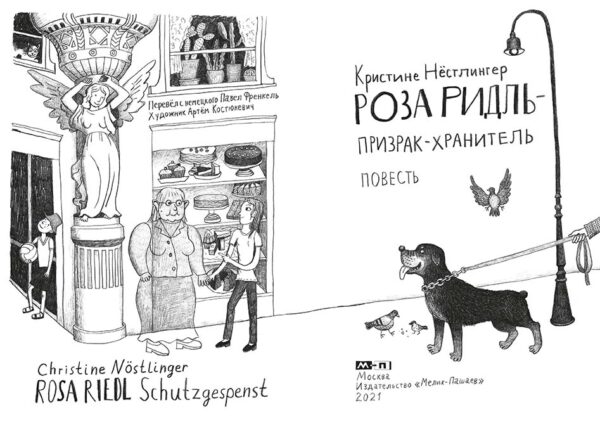 Перевёл с немецкого Павел Френкель
Художник Артём Костюкевич
Christine Nöstlinger
ROSA RIEDL Schutzgespenst
Кристине Нёстлингер
РОЗА РИДЛЬ-
ПРИЗРАК-ХРАНИТЕЛЬ
ПОВЕСТЬ
М-П
Москва
Издательство «Мелик-Пашаев»
2021